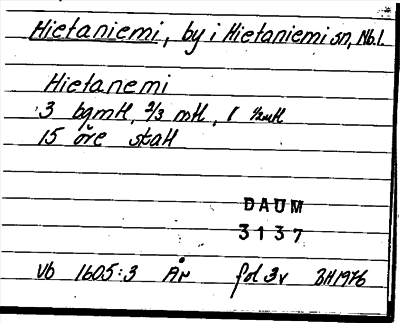 Hietaniemi, by i Hietaniemi sn, Nb.l.
Hietanemi
3 bgmtl, 2/3 mtl, 1 1/2mtl
15 öre skatt
DAUM
3137
Vb 1605:3 År fol 3v BH1976